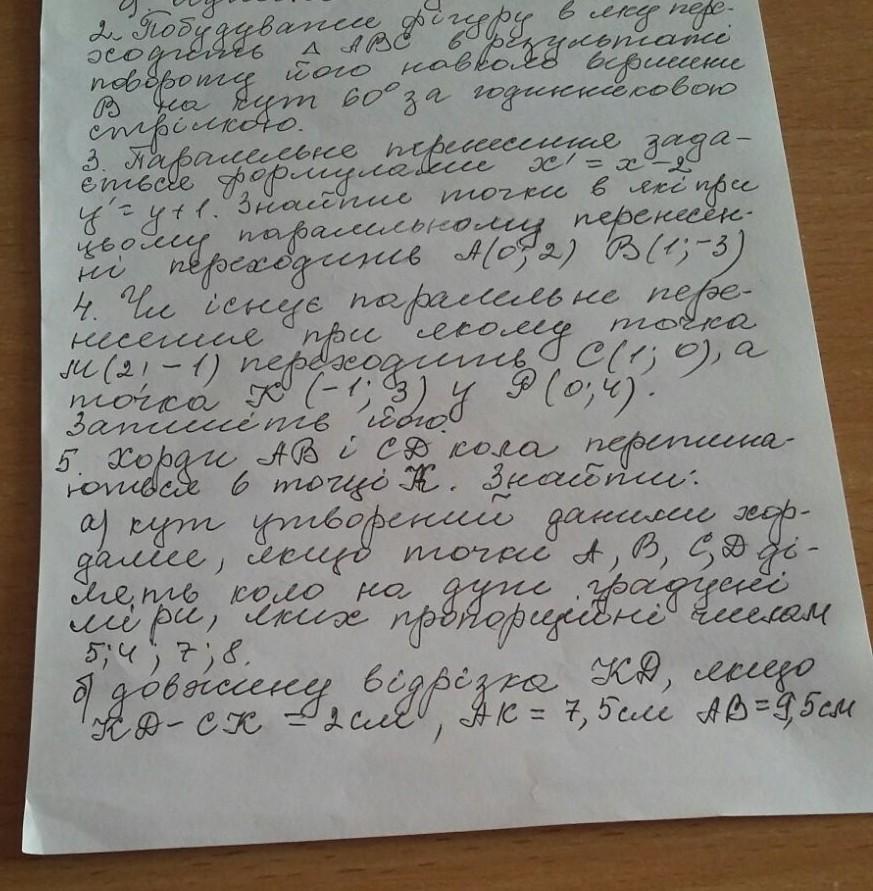 2. Побудувати фігуру в яку пере-
ходить △ ABC в результаті
повороту його навколо вершини
B на кут 60° за годинниковою
стрілкою.
3. Паралельне перенесення зада-
ється формулами x' = x - 2
y' = y + 1. Знайти точки в які при
цьому паралельному перенесен-
ні переходить A(0; 2) B(1; -3)
4. Чи існує паралельне пере-
несення при якому точка
M(2; -1) переходить C(1; 0), а
точка K (-1; 3) у P(0; 4).
Запишіть його.
5. Хорди AB і CD кола перетина-
ються в точці K. Знайти:
а) кут утворений даними хор-
дами, якщо точки A, B, C, D ді-
лять коло на дуги градусні
міри, яких пропорційні числам
5; 4; 7; 8.
б) довжину відрізка KD, якщо
KD - CK = 2см, AK = 7,5см AB = 9,5см